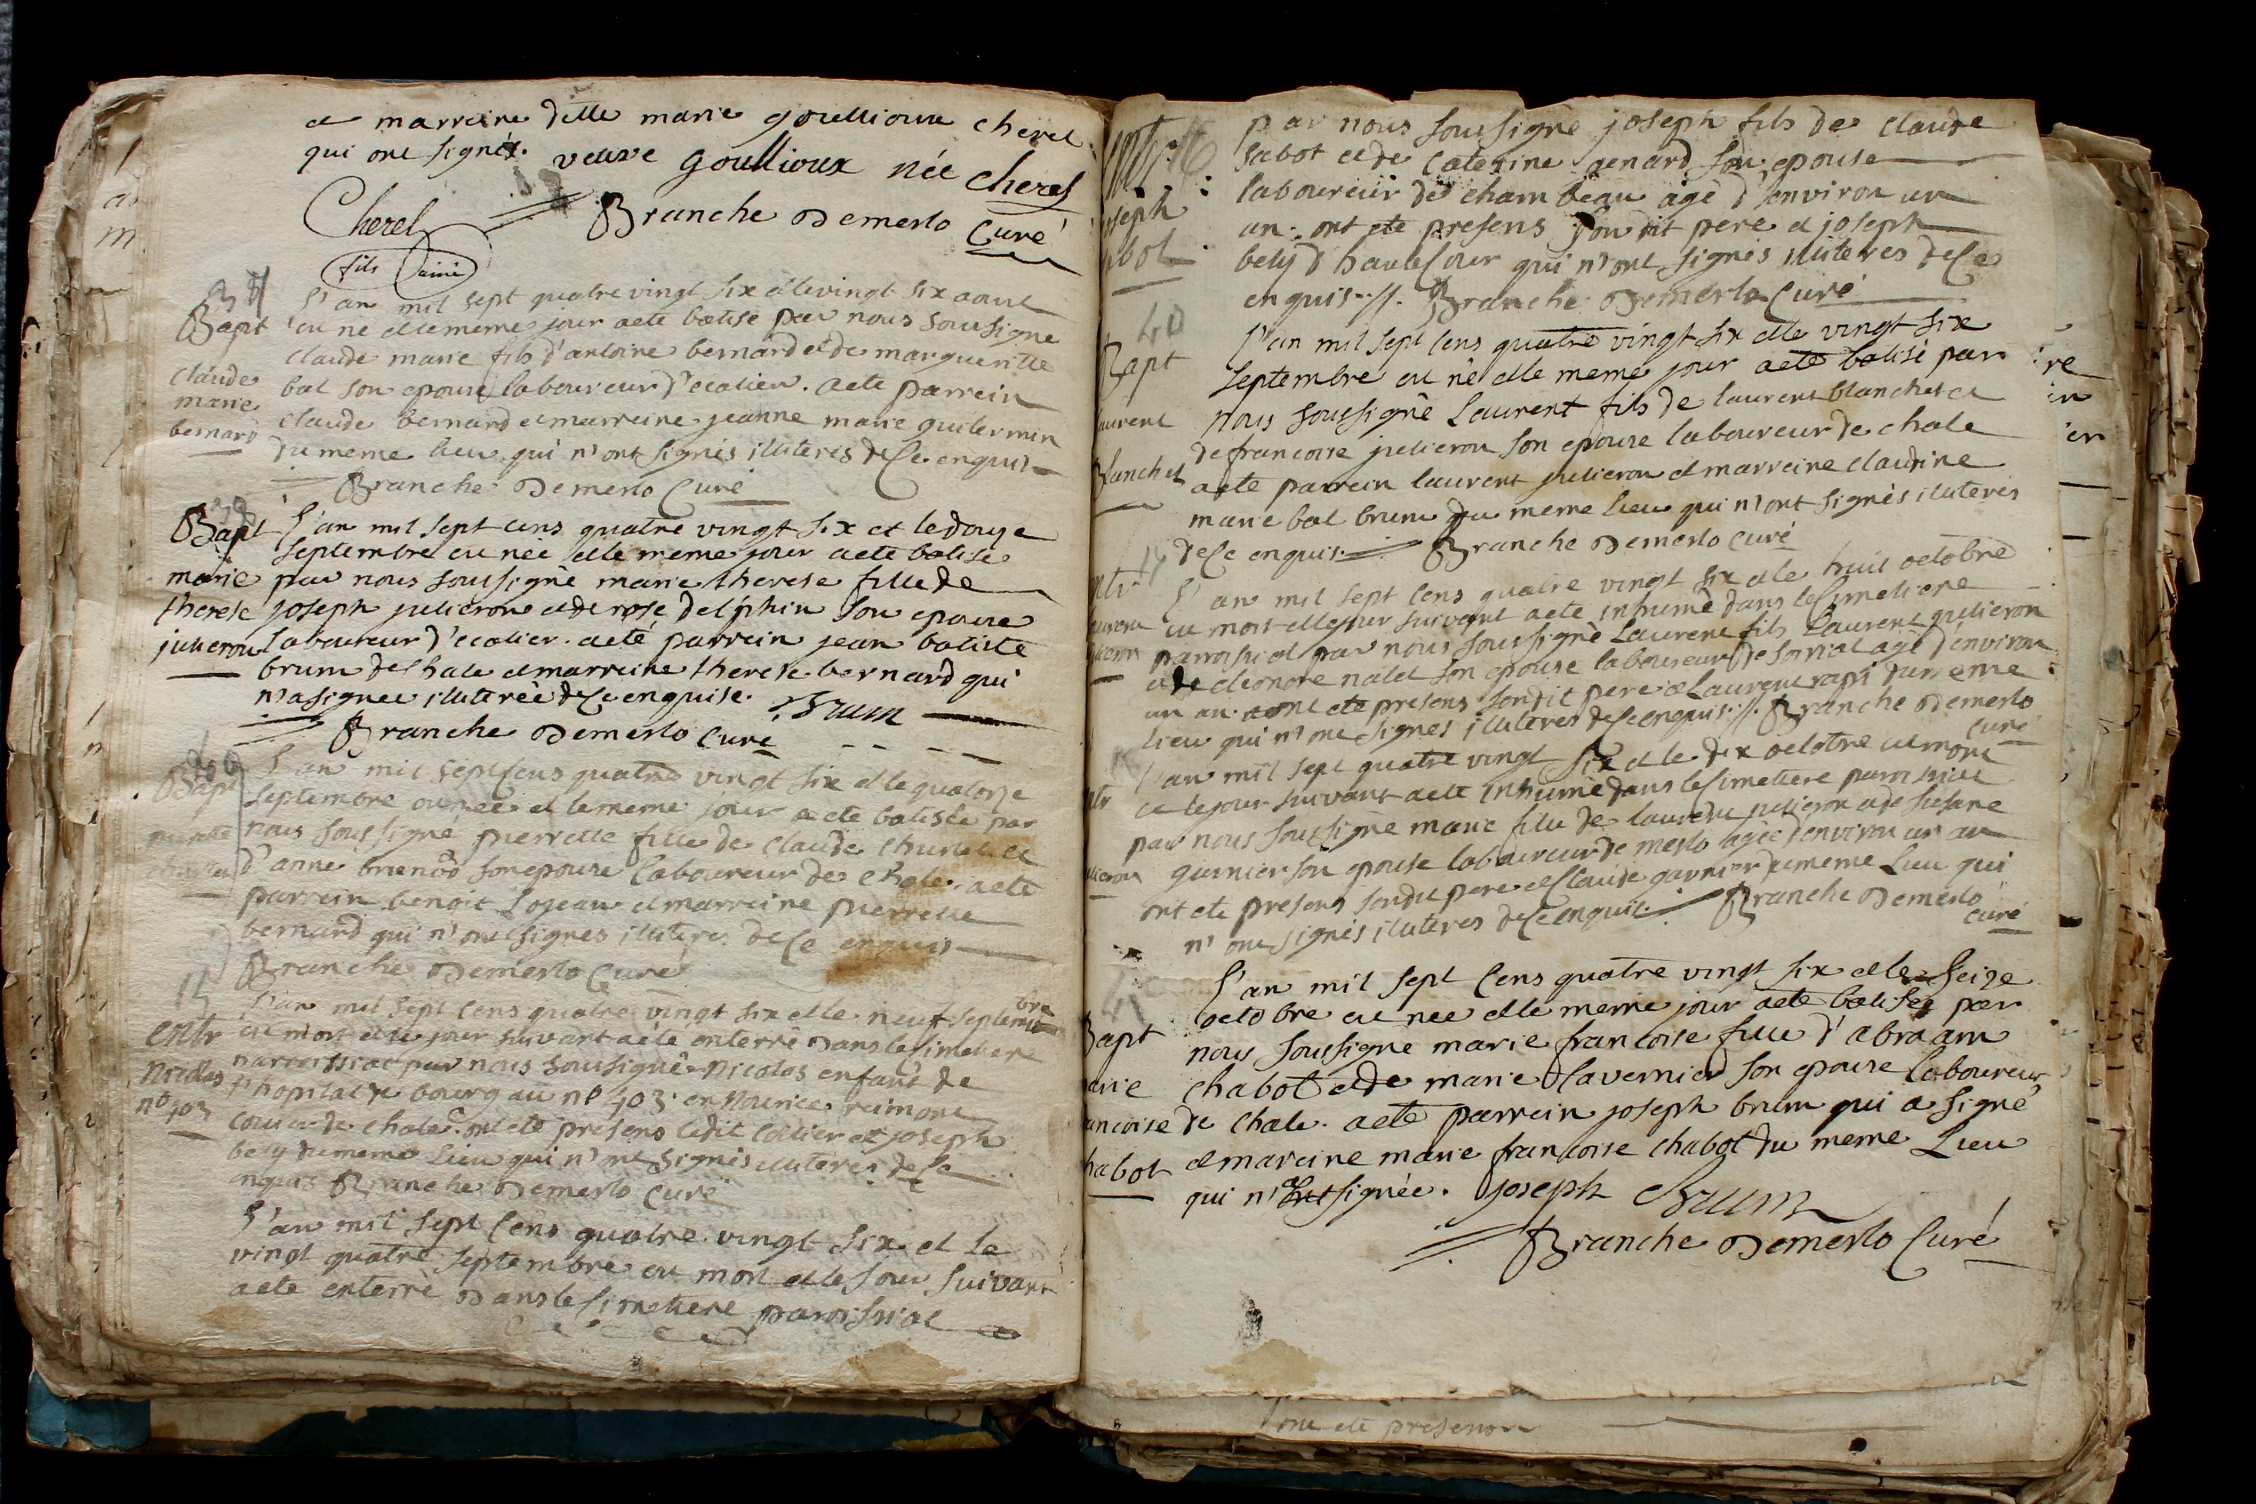 et marreine delle marie goullioux cherel
qui ont signés. veuve Goullioux née Cherel
Cherel Branche Demerlo Curé
fils ainé
37
Bapt
claude
marie
bernard
L'an mil sept quatre vingt six et le vingt six aout
eu né et le meme jour aeté batisé par nous soussigné
claude marie fils d'antoine bernard et de margueritte
bal son epouse laboureur d'ecolier. aeté parrein
claude bernard et marreine jeanne marie guilermin
du meme lieu qui n'ont signés illiterés de ce enquis
Branche Demerlo Curé
38
Bapt
marie
therese
julieron
L'an mil sept cens quatre vingt six et le douze
septembre eu née et le meme jour aeté batisé
par nous soussigné marie therese fille de
joseph julieron et de rose delphin son epouse
laboureur d'ecolier. aeté parrein jean batiste
brum de chale et marreine therese bernard qui
n'a signée illiterée de ce enquise. Brum
Branche Demerlo Curé
Bapt
L'an mil sept cens quatre vingt six et le quatorze
septembre eu née et le meme jour aeté batisée par
nous soussigné pierrette fille de claude et
d'anne son epouse laboureur de chale. aeté
parrein benoit Lozeau et marreine pierrette
bernard qui n'ont signés illiterés de ce enquis
Branche Demerlo Curé
15
entr
Nicolas
no 403
L'an mil sept cens quatre vingt six et le neuf septembre
eu mort et le jour suivant aété enterré dans le simetiere
parroissial par nous soussigné Nicolas enfant de
l'hopital de bourg au no 403. en nourice reimond
de chale. ont eté presens ledit et joseph
bely du meme Lieu qui n'ont signés illiterés de ce
enquis Branche Demerlo Curé
L'an mil sept cens quatre vingt six et le
vingt quatre septembre eu mort et le jour suivant
aeté enterré Dans le simetiere parroissial
entr 16
joseph
sabot
par nous soussigné joseph fils de claude
sabot et de caterine genard son epouse
laboureur de chambeau agé d'environ un
an. ont eté presens son dit pere et joseph
bely d'hautecour qui n'ont signés illiteres de ce
enquis. Branche Demerlo Curé
40
Bapt
laurent
Blanchet
L'an mil sept cens quatre vingt six et le vingt six
septembre eu né et le meme jour aeté batisé par
nous soussigné Laurent fils de laurent blanchet et
de francoise julieron son epouse laboureur de chale
aeté parrein laurent julieron et marreine claudine
marie bal brum du meme lieu qui n'ont signés illiterés
de ce enquis. Branche Demerlo curé
17
entr
laurent
julieron
L'an mil sept cens quatre vingt six et le huit octobre
eu mort et le jour suivant aeté inhumé dans le simetiere
parroissial par nous soussigné Laurent fils Laurent julieron
et de eleonore nalet son epouse laboureur de agé d'environ
un an. ont eté presens sondit pere et Laurent du meme
lieu qui n'ont signés illiterés de ce enquis. Branche Demerlo
curé
entr
julieron
L'an mil sept quatre vingt six et le dix octobre eu mort
et le jour suivant aeté inhumé dans le simetiere paroissial
par nous soussigné marie fille de laurent julieron et de susane
garnier son epouse laboureur de merlo agée d'environ un an
ont eté presens sondit pere et claude garnier du meme Lieu qui
n'ont signés illiterés de ce enquis. Branche Demerlo
curé
41
Bapt
marie
francoise
chabot
L'an mil sept cens quatre vingt six et le seize
octobre eu née et le meme jour aeté batisée par
nous soussigné marie francoise fille d'abraam
chabot et de marie Lavernier son epouse laboureur
de chale. aeté parrein joseph brum qui a signé
et mareine marie francoise chabot du meme Lieu
qui n'a signée. joseph Brum
Branche Demerlo Curé
ont eté presens